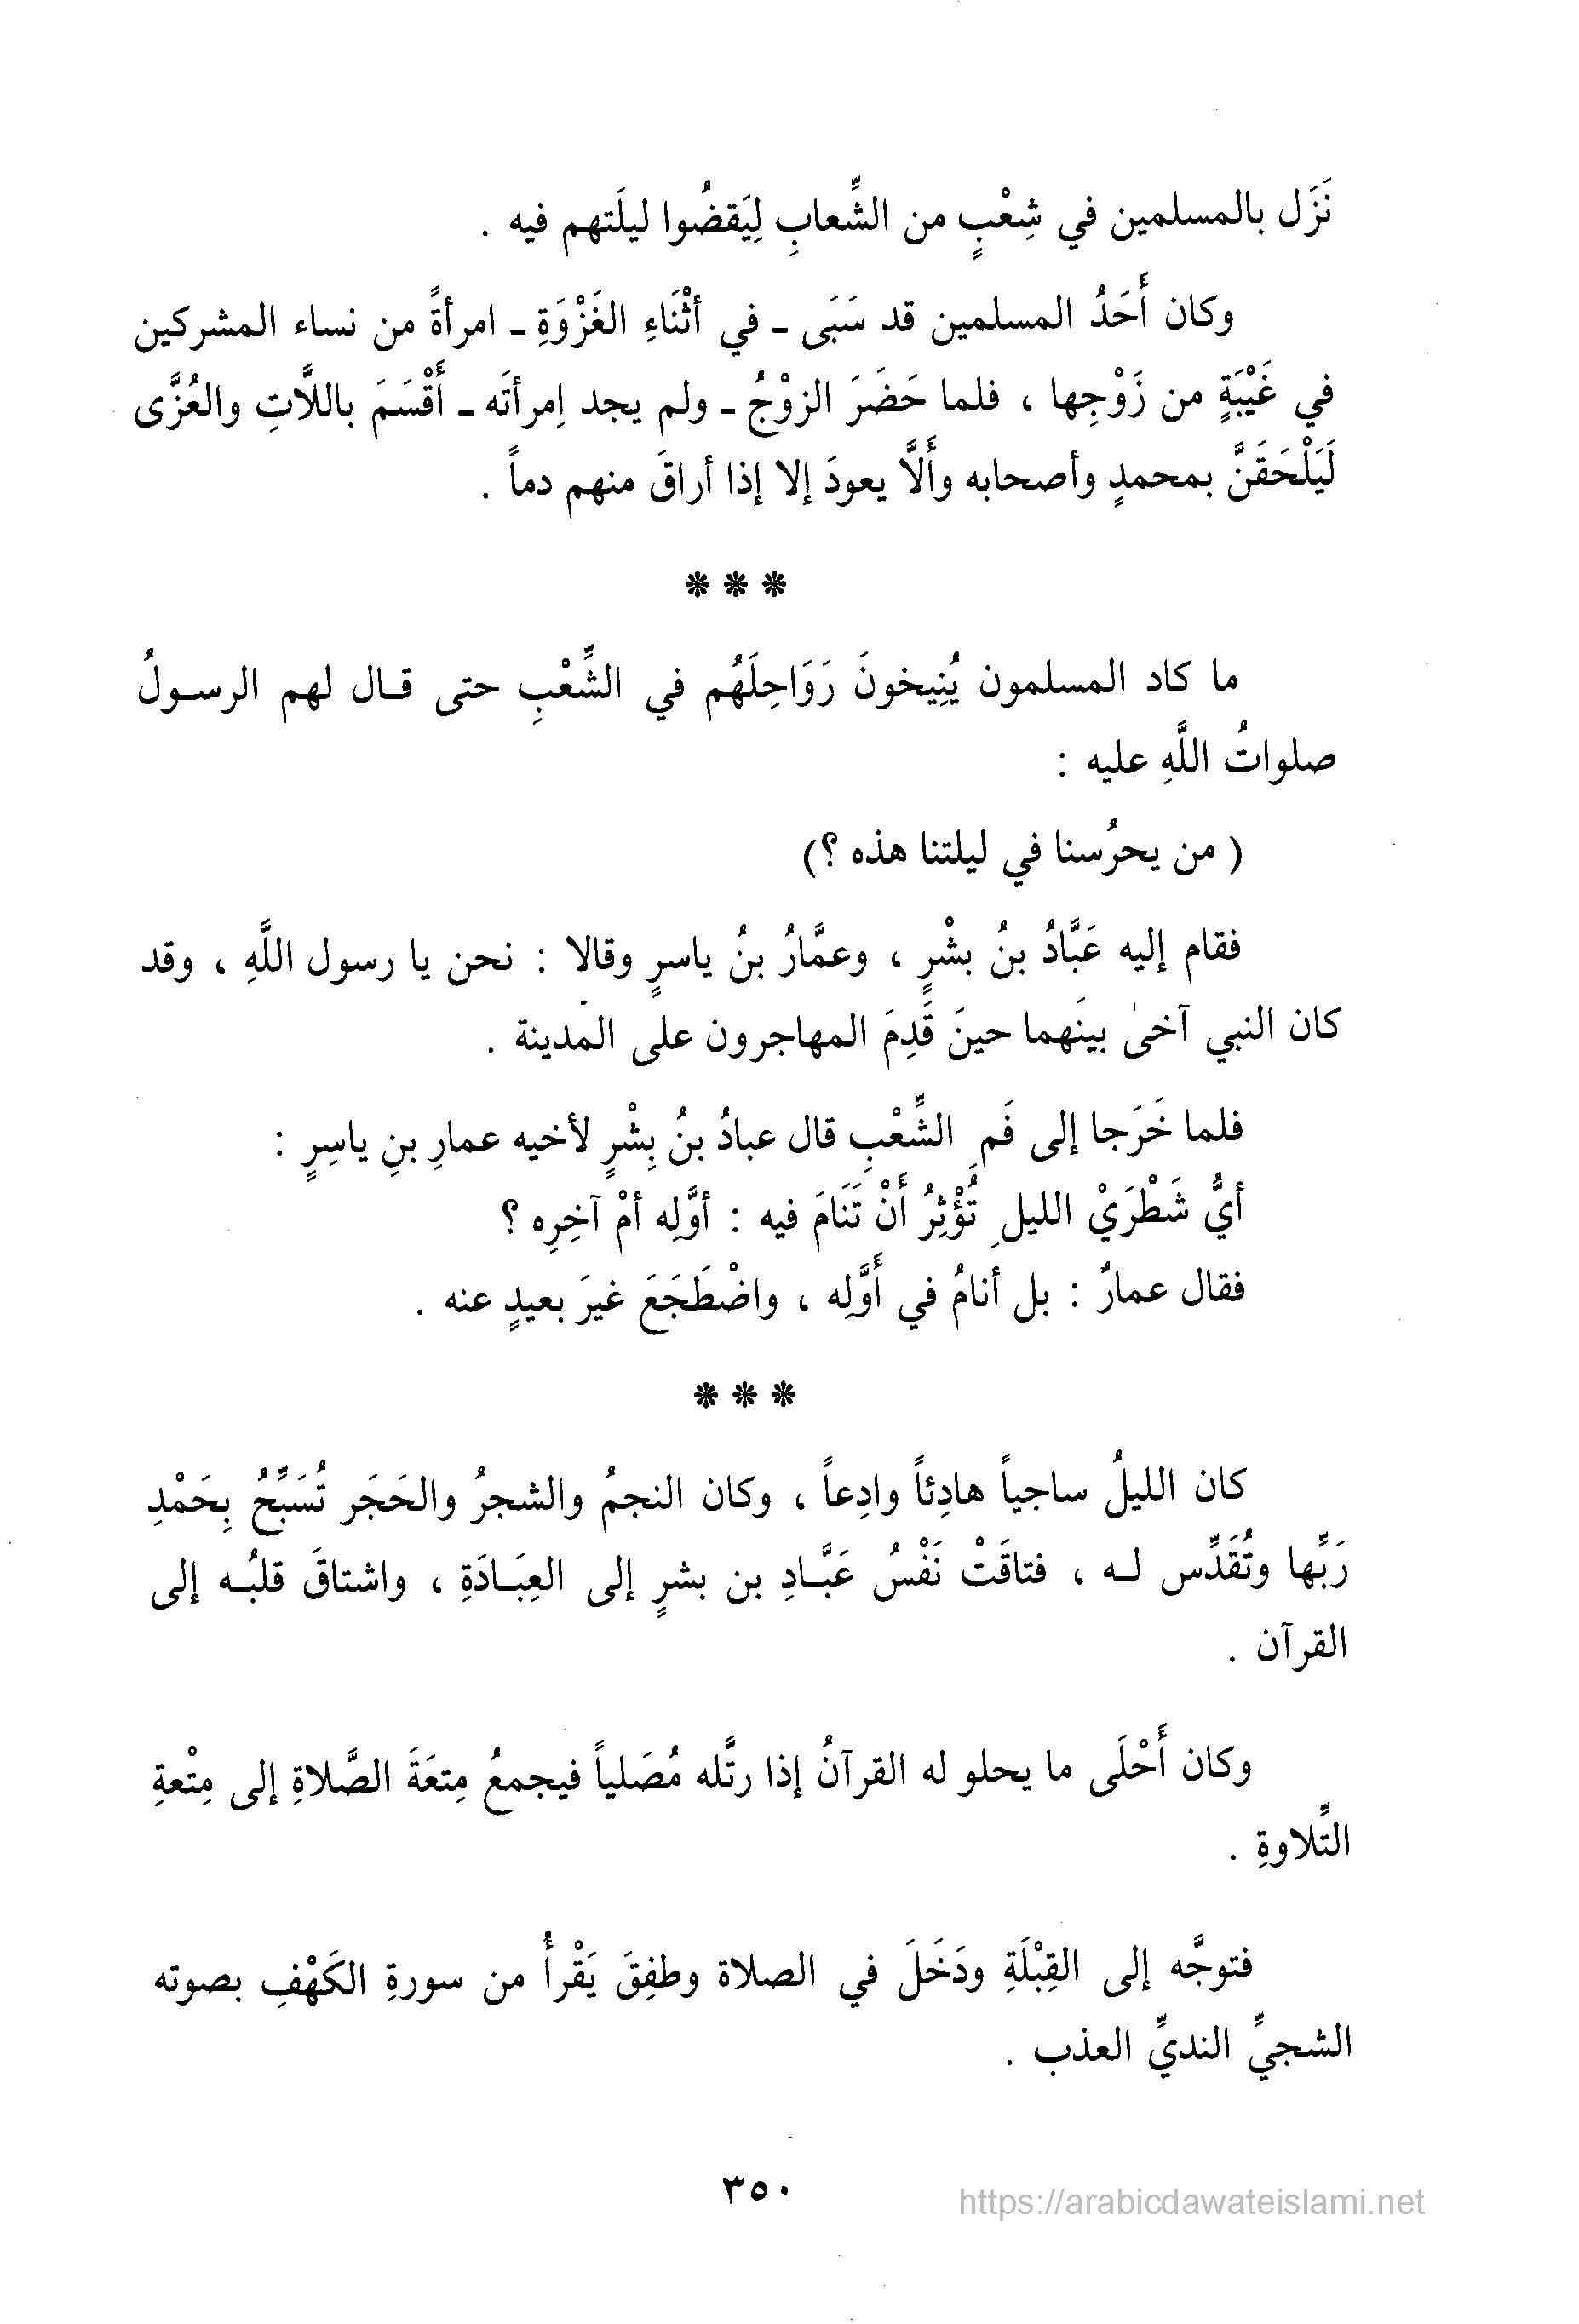 نَزَل بالمسلمين في شِعْبٍ من الشِّعابِ لِيَقضُوا ليلَتهم فيه .
وكان أَحَدُ المسلمين قد سَبَى ـ في أثْنَاءِ الغَزْوَةِ ـ امرأةً من نساء المشركين
في غَيْبَةٍ من زَوْجِها ، فلما حَضَرَ الزوْجُ ـ ولم يجد اِمرأتَه ـ أَقْسَمَ باللَّاتِ والعُزَّى
لَيَلْحَقَنَّ بمحمدٍ وأصحابه وأَلَّا يعودَ إلا إذا أراقَ منهم دماً .
* * *
ما كاد المسلمون يُنِيخونَ رَوَاحِلَهُم في الشِّعْبِ حتى قـال لهم الرسـولُ
صلواتُ اللَّهِ عليه :
( من يحرُسنا في ليلتنا هذه ؟)
فقام إليه عَبَّادُ بنُ بشْرٍ ، وعمَّارُ بنُ ياسرٍ وقالا : نحن يا رسول اللَّهِ ، وقد
كان النبي آخىٰ بينَهما حينَ قَدِمَ المهاجرون على المدينة .
فلما خَرَجا إلى فَمِ الشِّعْبِ قال عبادُ بنُ بِشْرٍ لأخيه عمارِ بنِ ياسِرٍ :
أيُّ شَطْرَيْ الليلِ تُؤْثِرُ أَنْ تَنَامَ فيه : أوَّلِه أمْ آخِرِه ؟
فقال عمارٌ : بل أنامُ في أَوَّلِه ، واضْطَجَعَ غيرَ بعيدٍ عنه .
* * *
كان الليلُ ساجياً هادِئاً وادِعاً ، وكان النجمُ والشجرُ والحَجَر تُسَبِّحُ بِحَمْدِ
رَبِّها وتُقَدِّس لـه ، فتاقَتْ نَفْسُ عَبَّـادِ بن بشرٍ إلى العِبَـادَةِ ، واشتاقَ قلبُـه إلى
القرآن .
وكان أَحْلَى ما يحلو له القرآنُ إذا رتَّله مُصَلياً فيجمعُ مِتعَةَ الصَّلاةِ إلى مِتْعةِ
التِّلاوةِ .
فتوجَّه إلى القِبْلَةِ ودَخَلَ في الصلاة وطفِقَ يَقْرأُ من سورةِ الكَهْفِ بصوته
الشجيِّ النديِّ العذب .
٣٥٠
https://arabicdawateislami.net